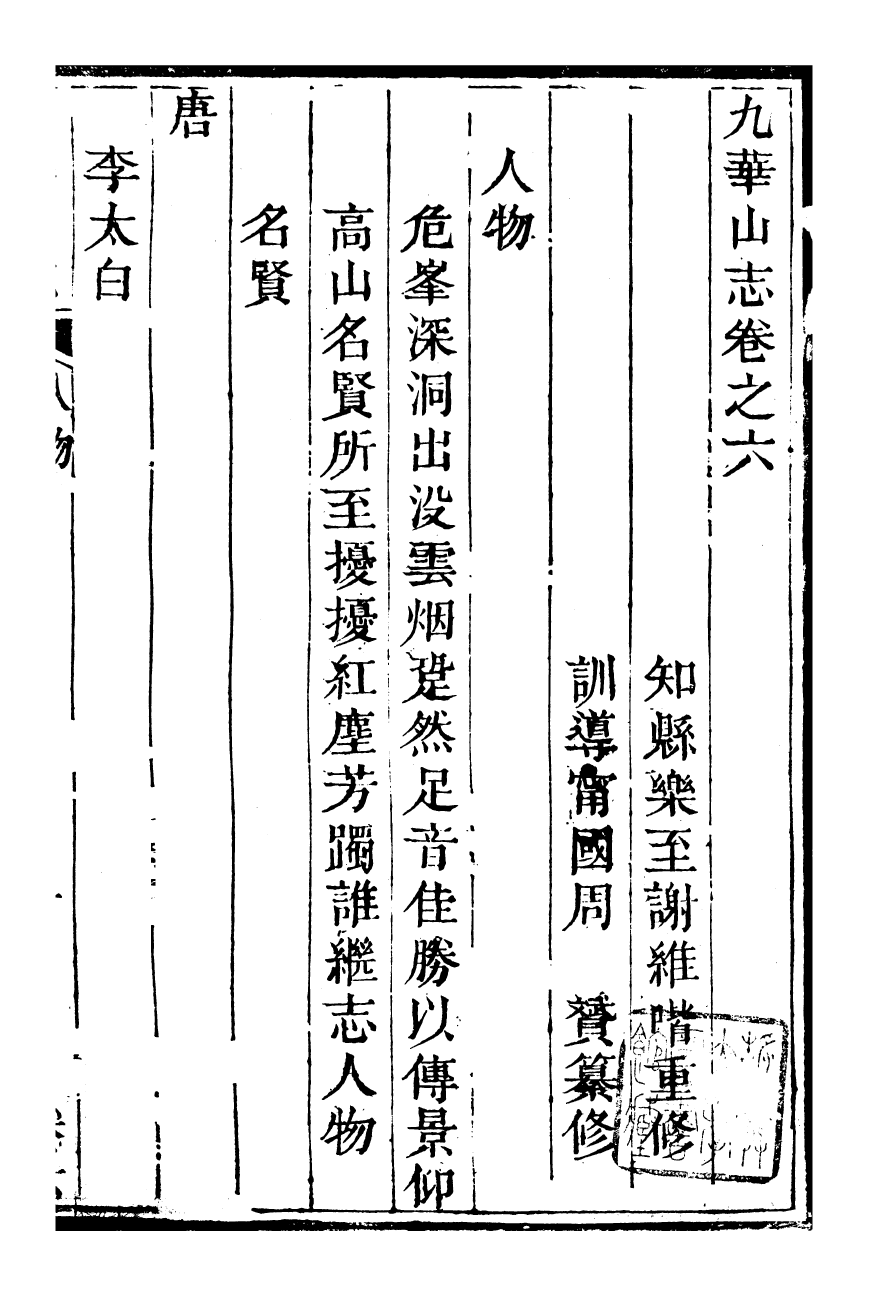 九華山志卷之六
知縣樂至謝維喈重修
訓導甯國周　贇纂修
人物
危峯深洞出没雲烟跫然足音佳勝以傳景仰
高山名賢所至擾擾紅塵芳躅誰繼志人物
名賢
唐
李太白
人物